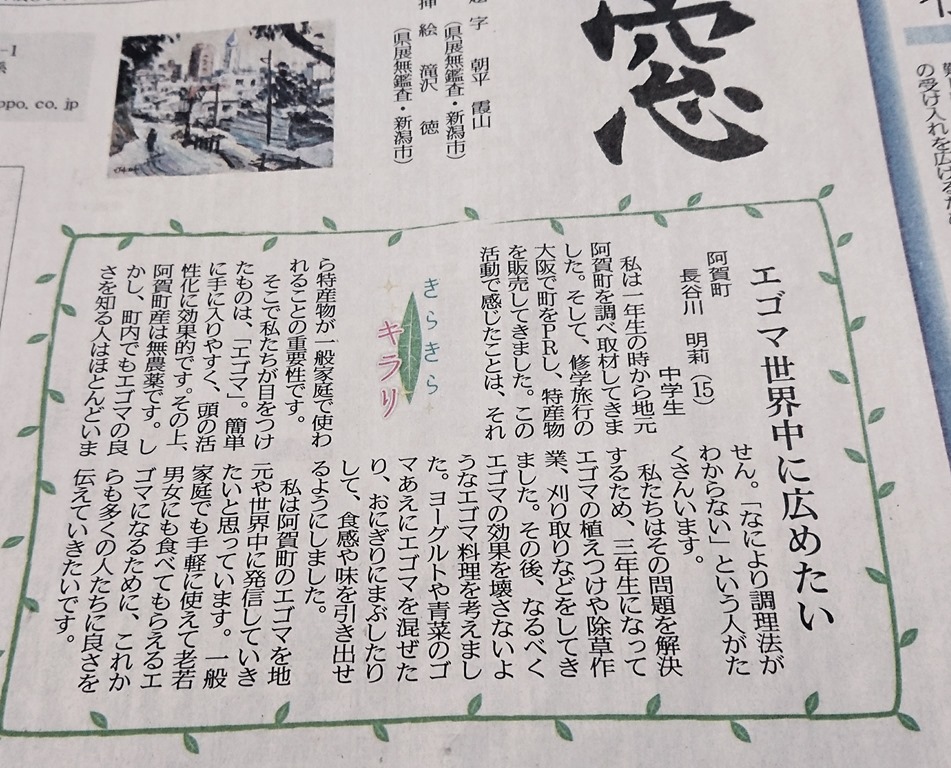 窓
題字 朝平 霞山
(県展無鑑査・新潟市)
挿絵 滝沢 徳
(県展無鑑査・新潟市)
ppo.co.jp
の受け入れを広げるた
エゴマ世界中に広めたい
阿賀町
長谷川 明莉(15)
中学生
私は一年生の時から地元
阿賀町を調べ取材してきま
した。そして、修学旅行の
大阪で町をPRし、特産物
を販売してきました。この
活動で感じたことは、それ
きらきら
キラリ
ら特産物が一般家庭で使わ
れることの重要性です。
そこで私たちが目をつけ
たものは、「エゴマ」。簡単
に手に入りやすく、頭の活
性化に効果的です。その上、
阿賀町産は無農薬です。し
かし、町内でもエゴマの良
さを知る人はほとんどいま
せん。「なにより調理法が
わからない」という人がた
くさんいます。
私たちはその問題を解決
するため、三年生になって
エゴマの植えつけや除草作
業、刈り取りなどをしてき
ました。その後、なるべく
エゴマの効果を壊さないよ
うなエゴマ料理を考えまし
た。ヨーグルトや青菜のゴ
マあえにエゴマを混ぜた
り、おにぎりにまぶしたり
して、食感や味を引き出せ
るようにしました。
私は阿賀町のエゴマを地
元や世界中に発信していき
たいと思っています。一般
家庭でも手軽に使えて老若
男女にも食べてもらえるエ
ゴマになるために、これか
らも多くの人たちに良さを
伝えていきたいです。